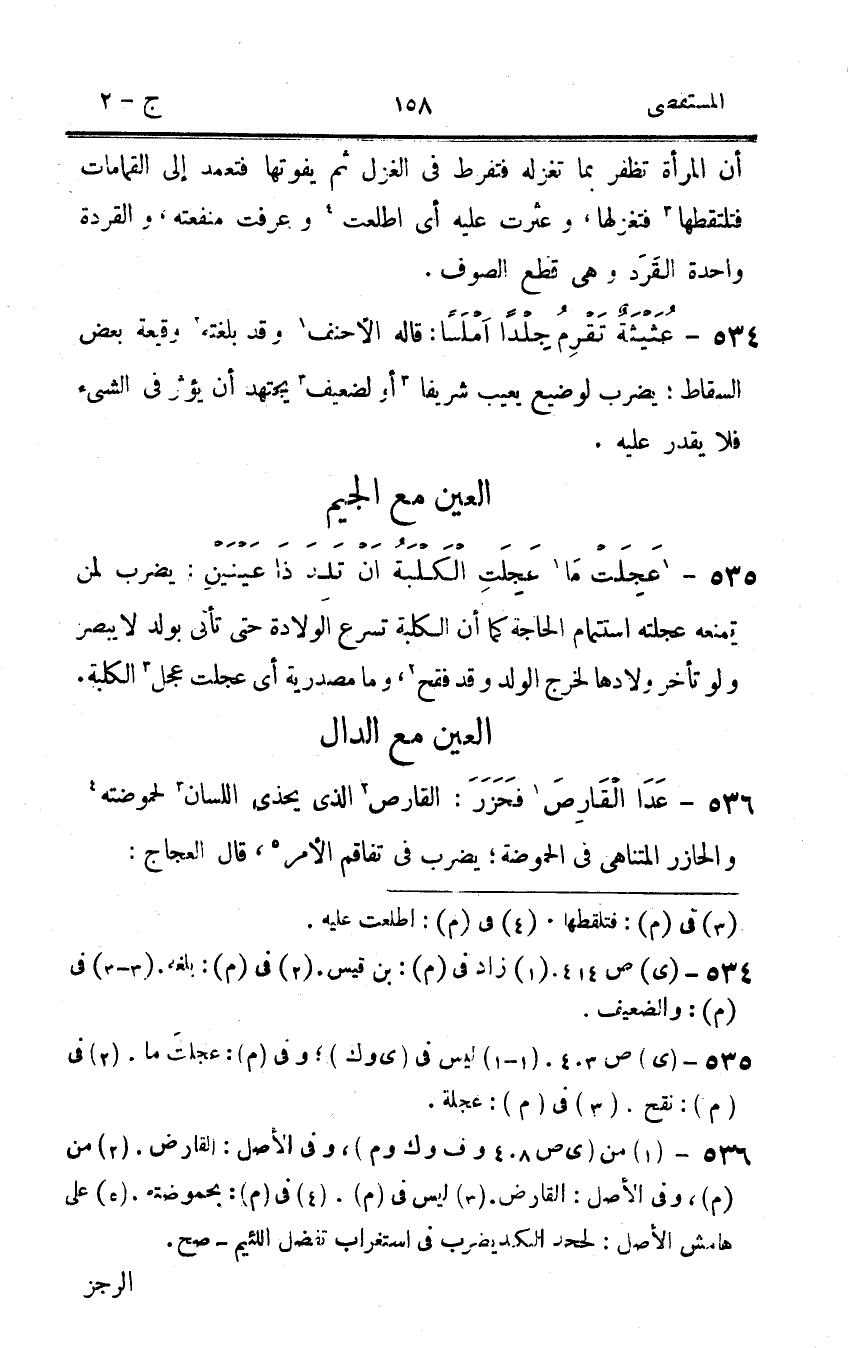 المستقصى ١٥٨ ج - ٢
أن المرأة تظفر بما تغزله فتفرط فى الغزل ثم يفوتها فتعمد إلى القمامات
فتلتقطها٣ فتغزلها، و عثرت عليه أى اطلعت٤ و عرفت منفعته، و القردة
واحدة القَرَد و هى قطع الصوف .
٥٣٤ - عُثَيْثَةٌ تَقْرِمُ جِلْدًا أَمْلَسًا: قاله الأحنف١ و قد بلغته٢ وقيعة بعض
السقاط : يضرب لوضيع يعيب شريفا ٣أو لضعيف٣ يجتهد أن يؤثر فى الشىء
فلا يقدر عليه .
العين مع الجيم
٥٣٥ - ١عَجِلَتْ مَا١ عَجِلَتِ الْكَلْبَةُ أَنْ تَلِدَ ذَا عَيْنَيْنِ : يضرب لمن
تمنعه عجلته استتمام الحاجة كما أن الكلبة تسرع الولادة حتى تأتى بولد لا يبصر
و لو تأخر ولادها لخرج الولد و قد فقح٢، و ما مصدرية أى عجلت عجل٣ الكلبة.
العين مع الدال
٥٣٦ - عَدَا الْقَارِصَ١ فَحَزَرَ : القارص٢ الذى يحذى اللسان٣ لحموضته٤
و الحازر المتناهى فى الحموضة؛ يضرب فى تفاقم الأمر٥، قال العجاج :
(٣) فى (م) : فتلقطها . (٤) فى (م) : اطلعت عليه .
٥٣٤ - (ى) ص ٤١٤. (١) زاد فى (م) : بن قيس. (٢) فى (م) : بلغه. (٣-٣) فى
(م) : والضعيف .
٥٣٥ - (ى) ص ٤٠٣ . (١-١) ليس فى (ى وك ) ؛ و فى (م) : عجلتَ ما . (٢) فى
( م ) : نقح . ( ٣ ) فى ( م ) : عجلة .
٥٣٦ - (١) من (ى ص ٤٠٨ و ف و ك و م )، و فى الأصل : القارض . (٢) من
(م)، وفى الأصل : القارض. (٣) ليس فى (م) . (٤) فى (م) : بحموضته . (٥) على
هامش الأصل : يضرب فى استغراب تفضل اللئيم - صح.
الرجز